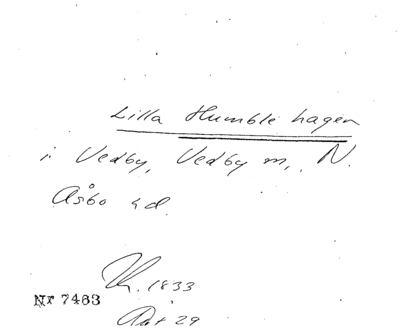 Lilla Humble hagen
i Vedby, Vedby m, N.
Åsbo hd.
1833
Nr 7463
Akt 29